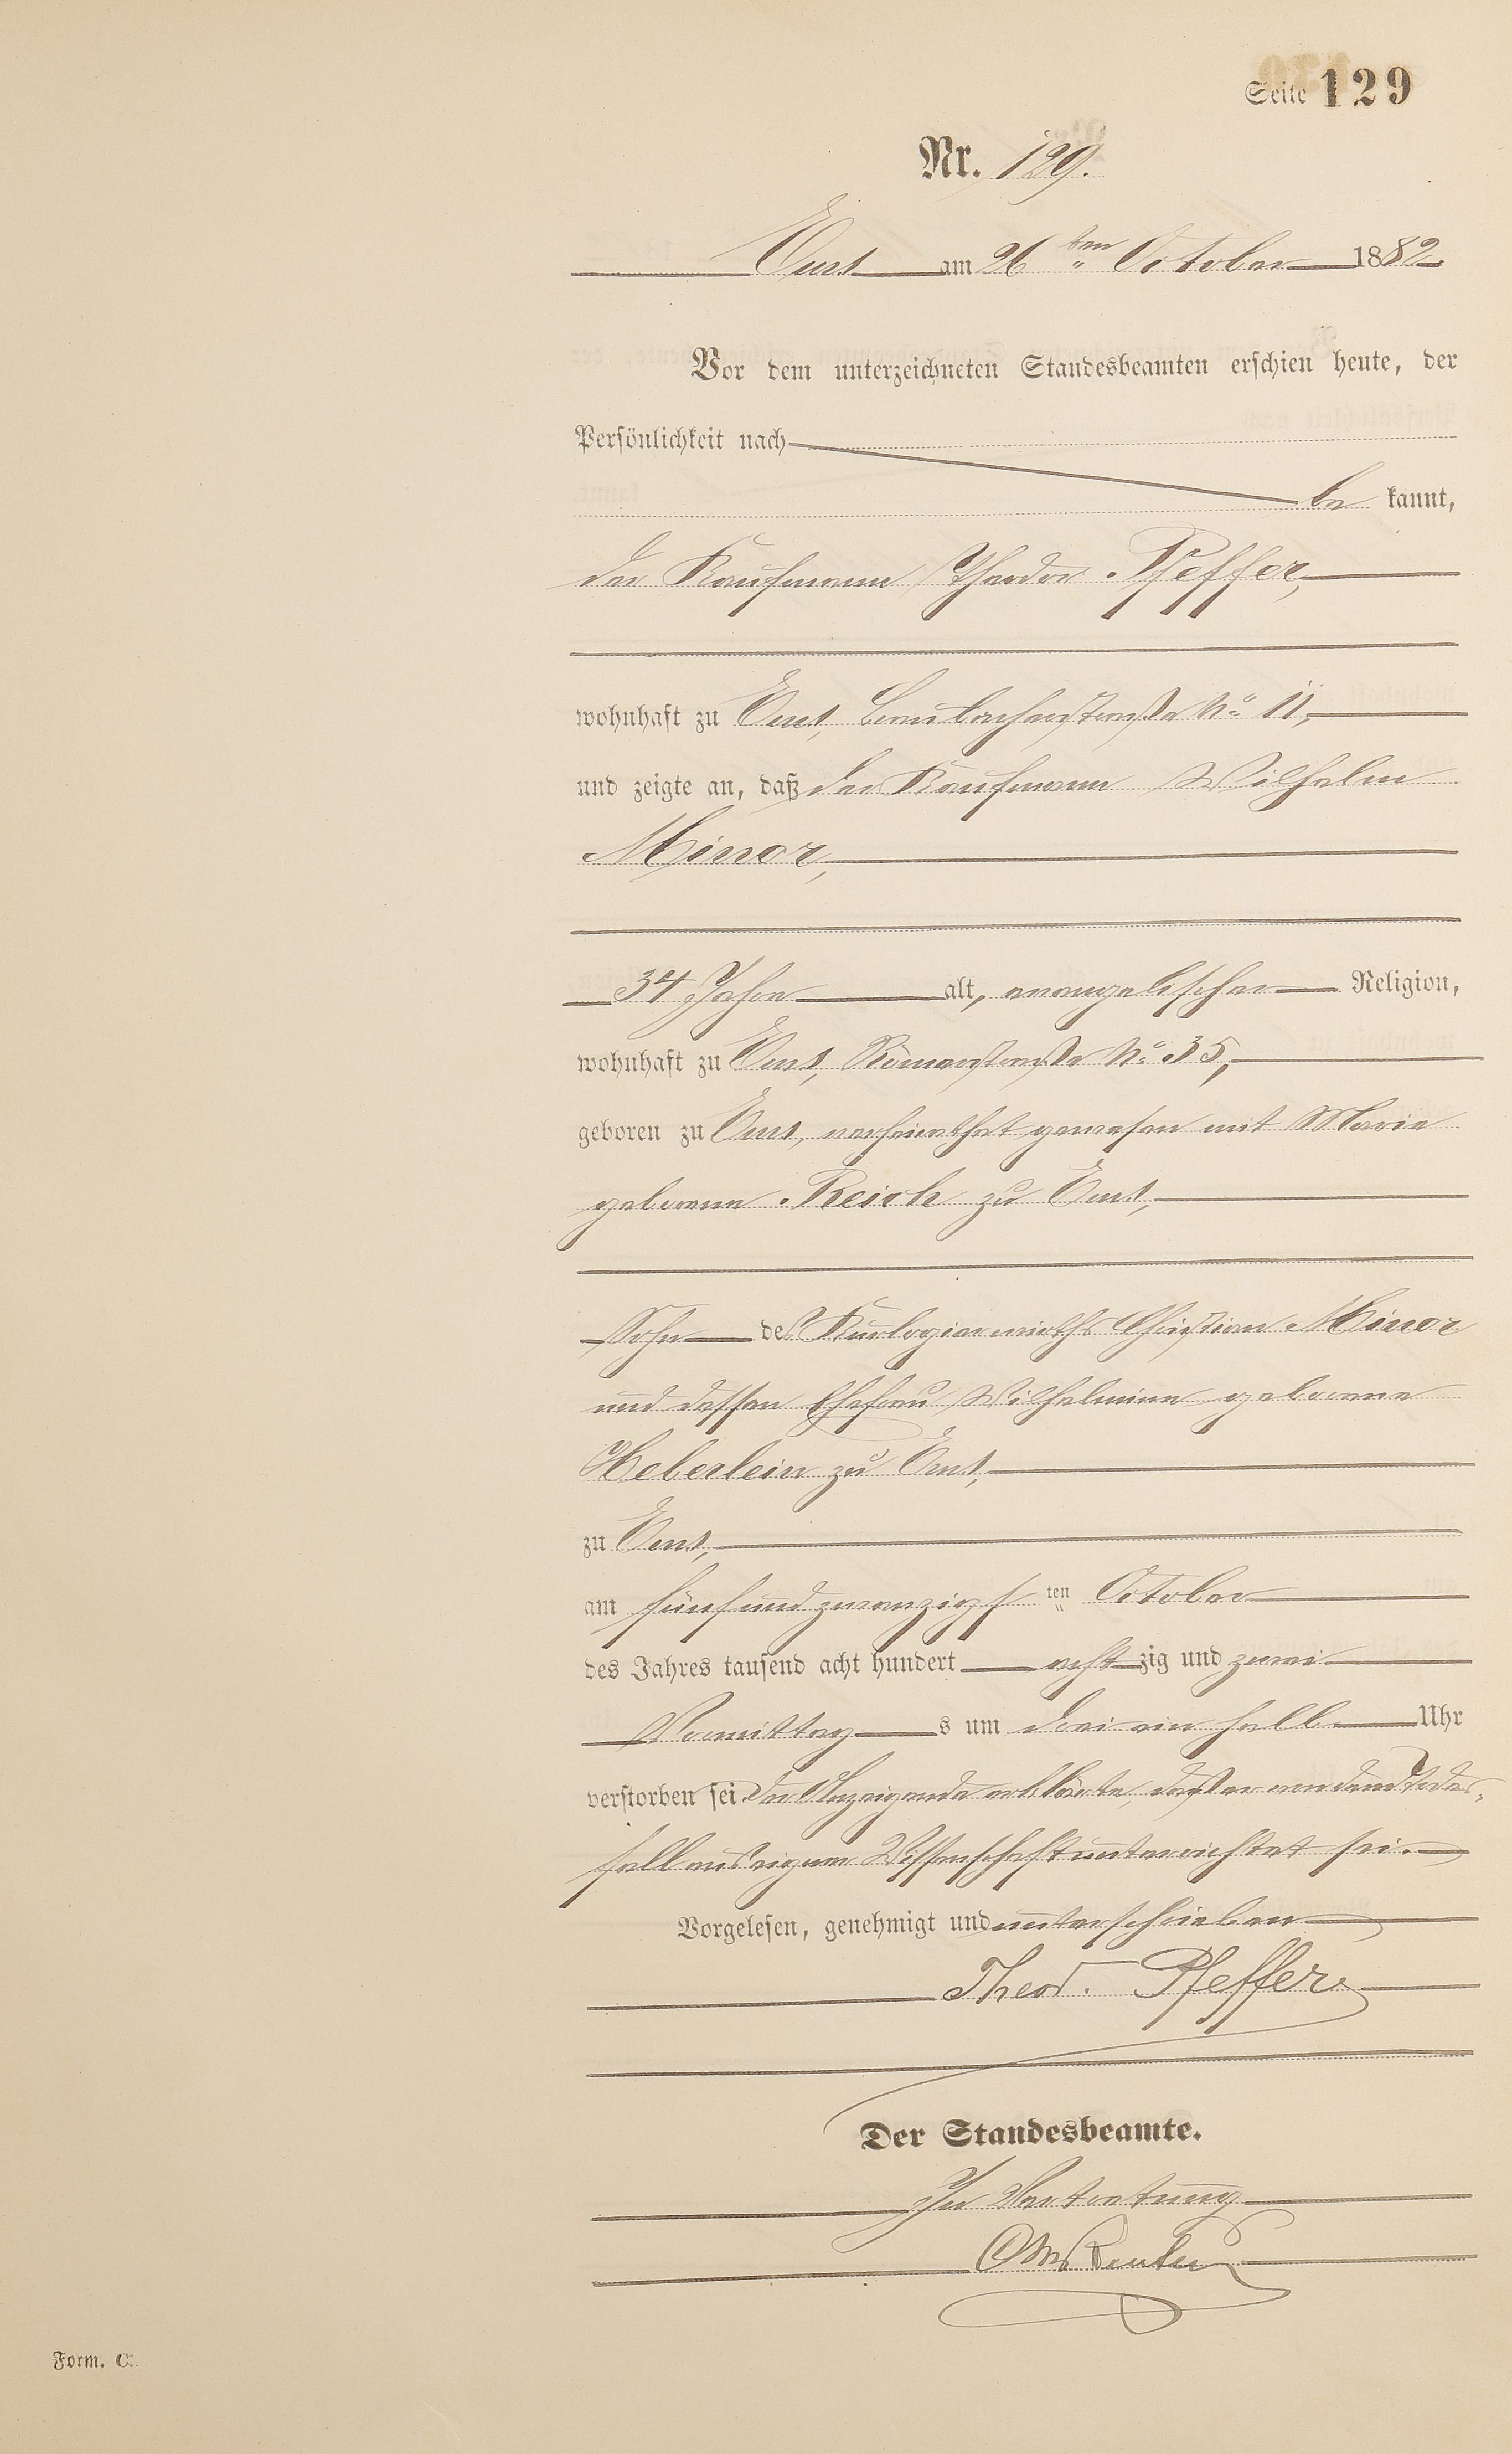 Seite 129
Nr. 129.
Ems am 26ten October 1882
Vor dem unterzeichneten Standesbeamten erschien heute, der
Persönlichkeit nach
be kannt,
der Kaufmann Theodor Pfeffer,
wohnhaft zu Ems, Braubacherstraße No 11,
und zeigte an, daß der Kaufmann Wilhelm
Minor,
34 Jahre alt, evangelischer Religion,
wohnhaft zu Ems, Römerstraße No 35,
geboren zu Ems, verheirathet gewesen mit Marie
geborene Reich zu Ems,
Sohn des Kurlogierwirths Christian Minor
und dessen Ehefrau Wilhelmine geborene
Heberlein zu Ems,
zu Ems,
am fünfundzwanzigsten October
des Jahres tausend acht hundert acht zig und zwei
Vormittags um drei ein halb Uhr
verstorben sei. Der Anzeigende erklärte, daß er von dem Todes-
fall aus eigener Wissenschaft unterrichtet sei.
Vorgelesen, genehmigt und unterschrieben
Theod. Pfeffer
Der Standesbeamte.
In Vertretung
Form. C.